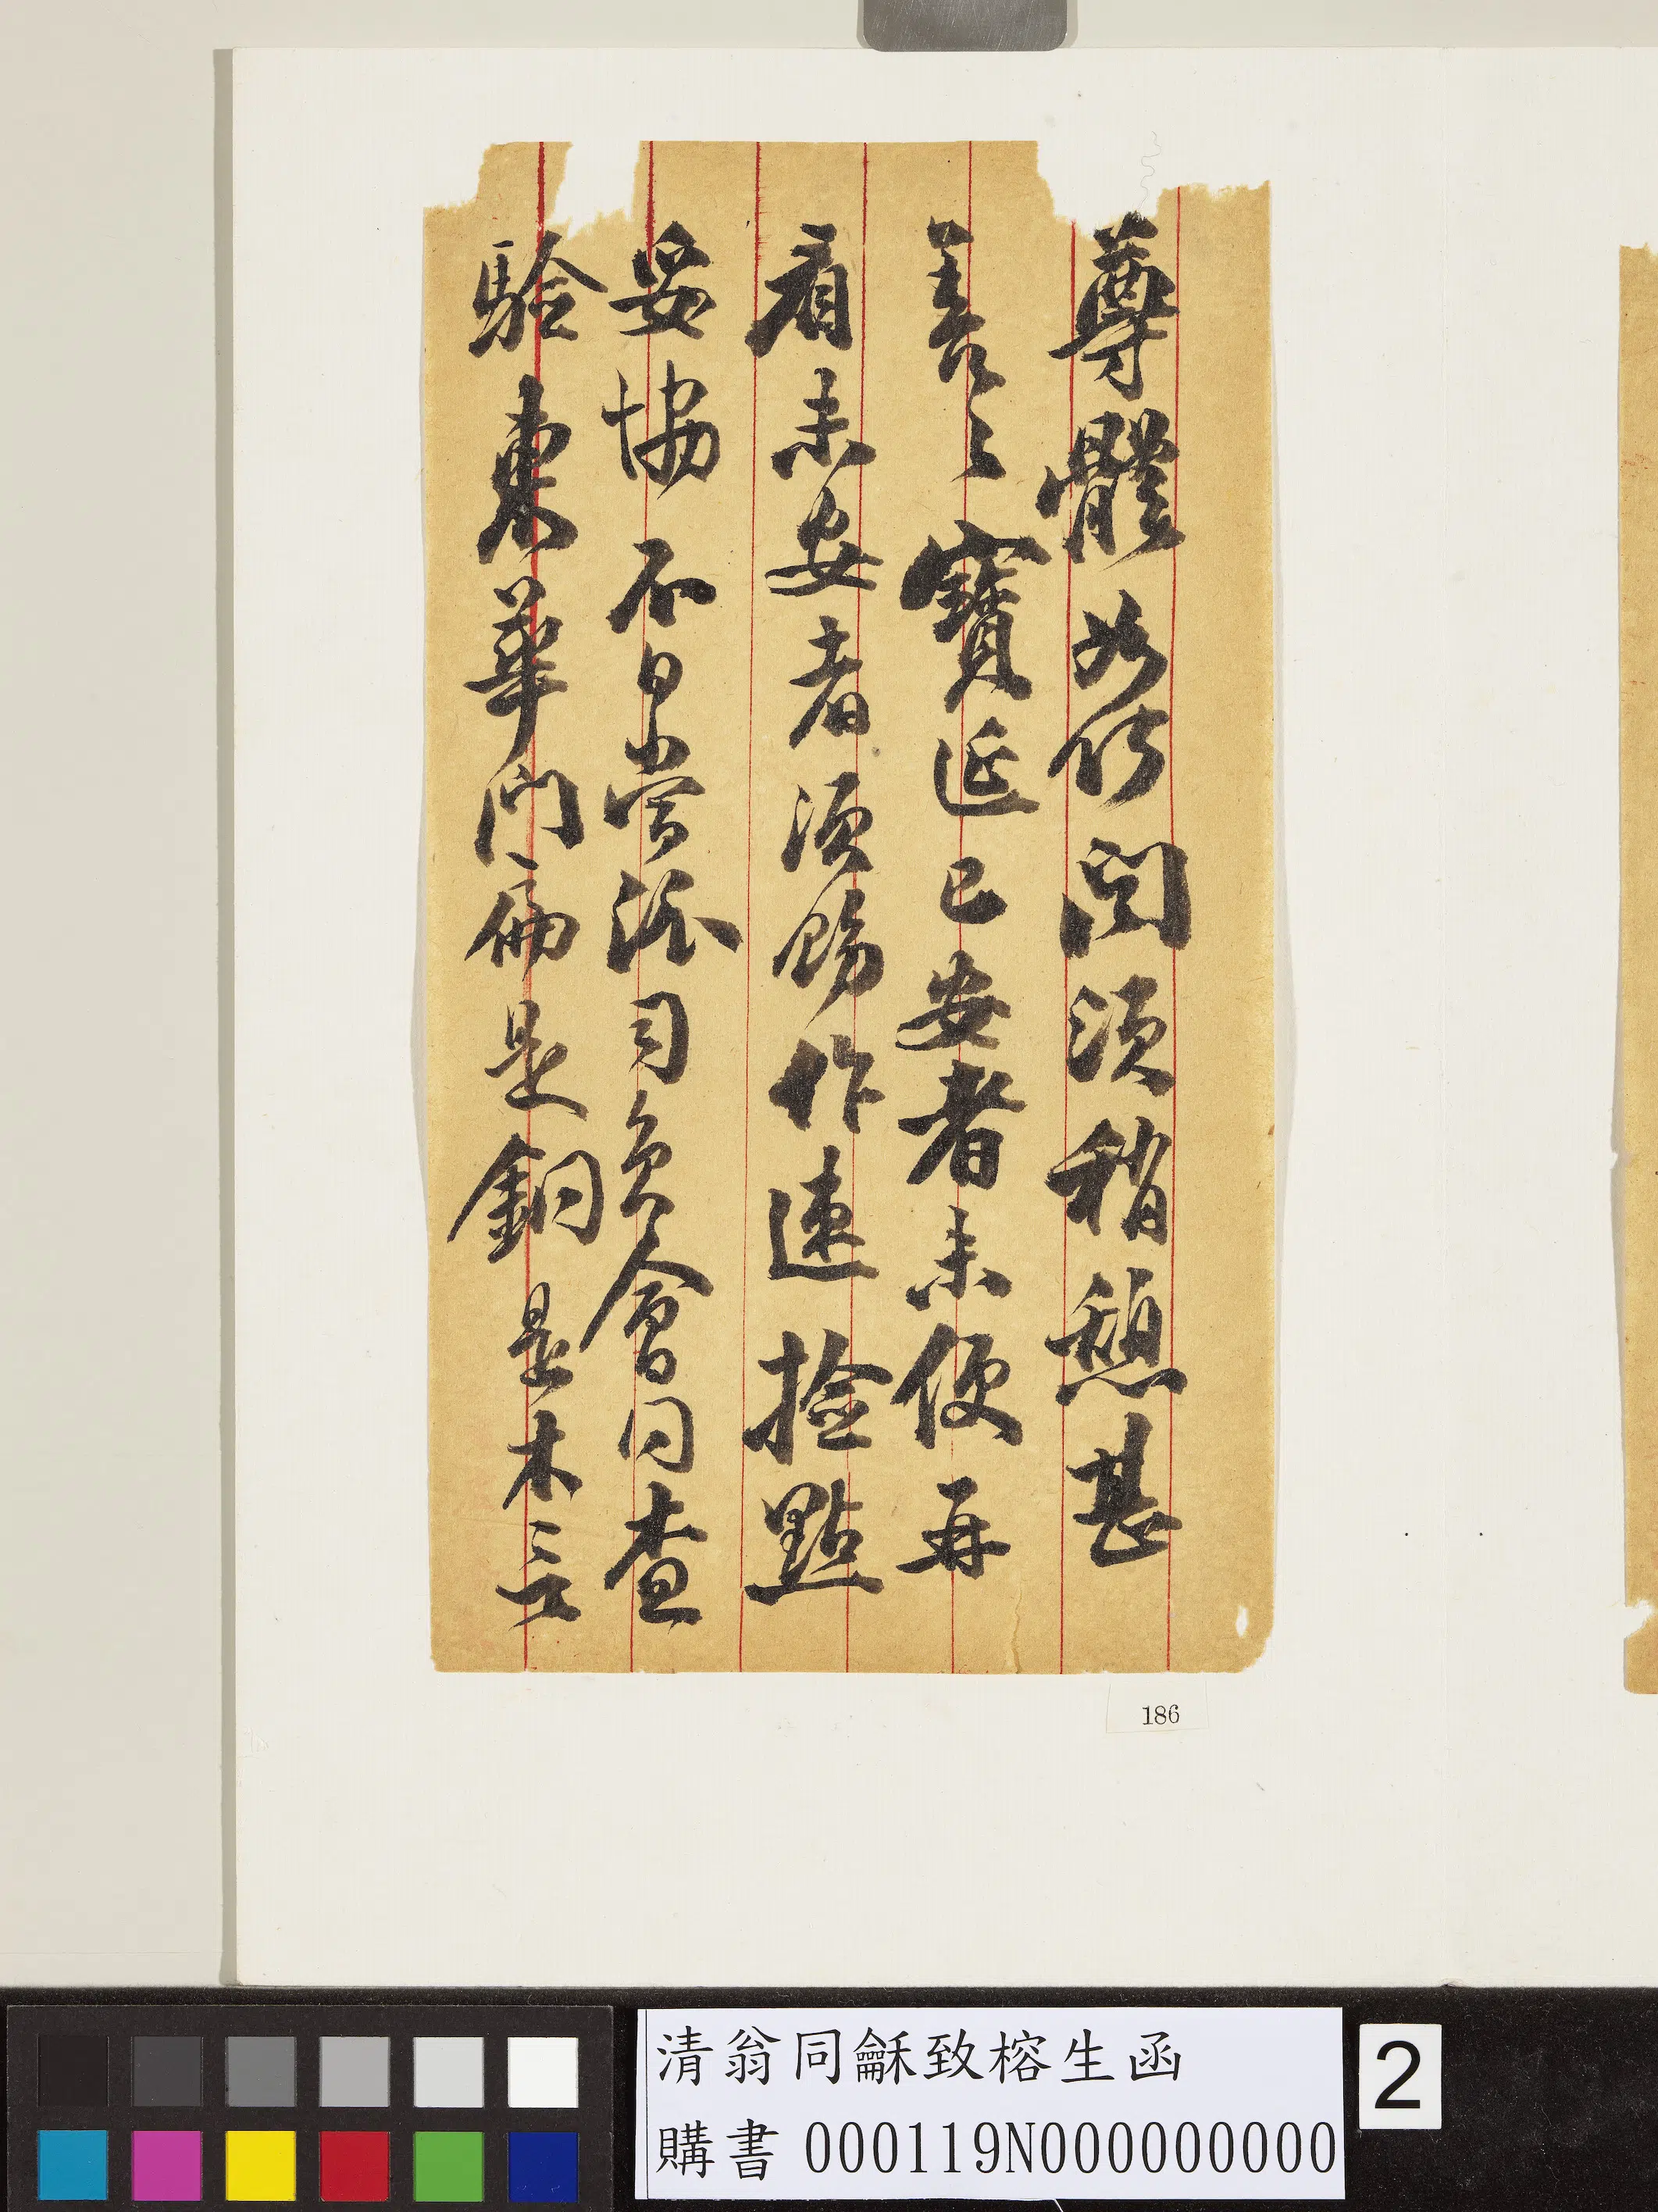 尊體如何閏須稍憩甚
善〻寶匣已安者未便再
看未安者須賜作速撿點
妥協不日當派司員會同查
驗東華門扁是銅是木三立
186
清翁同龢致榕生函
購書000119N000000000
2